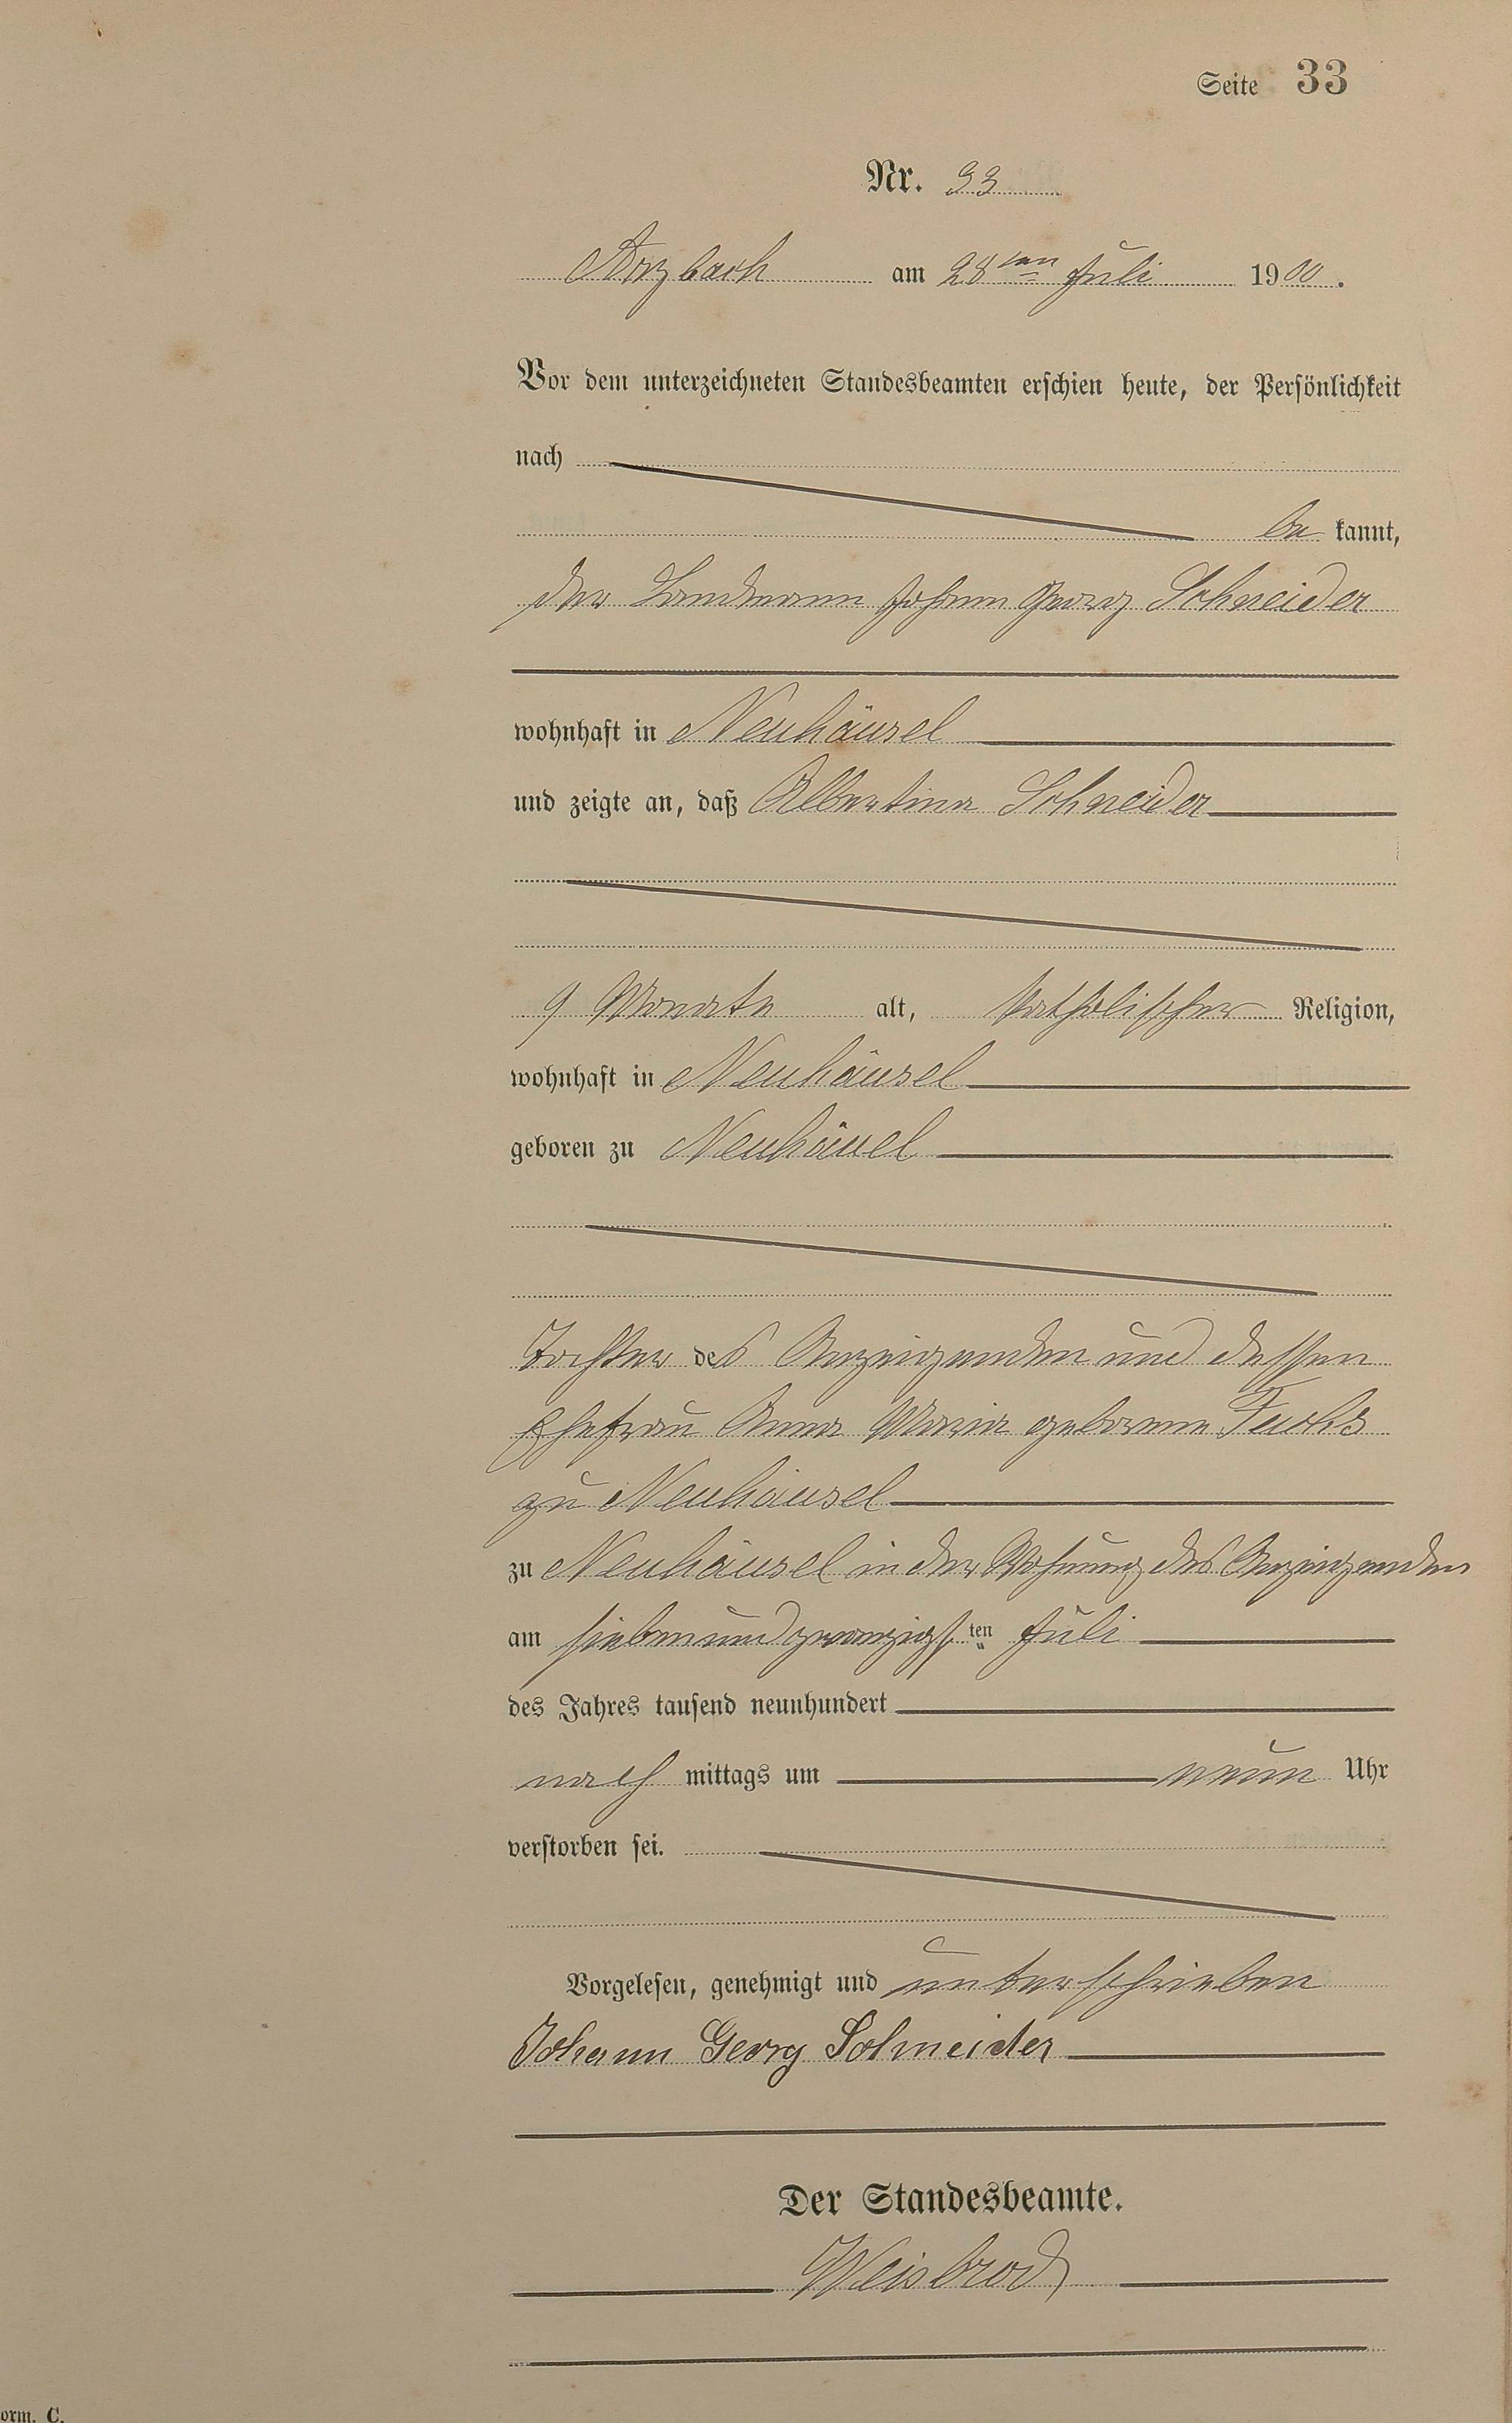 Seite 33
Nr. 33
Arzbach am 28ten Juli 1900.
Vor dem unterzeichneten Standesbeamten erschien heute, der Persönlichkeit
nach
be kannt,
der Landmann Johann Georg Schneider
wohnhaft in Neuhäusel
und zeigte an, daß Albertina Schneider
9 Monate alt, katholischer Religion,
wohnhaft in Neuhäusel
geboren zu Neuhäuel
Tochter des Anzeigenden und dessen
Ehefrau Anna Maria geborenne Fuchs
zu Neuhäusel
zu Neuhäusel in der Wohnung des Anzeigenden
am siebenundzwanzigsten Juli
des Jahres tausend neunhundert
nach mittags um neun Uhr
verstorben sei.
Vorgelesen, genehmigt und unterschrieben
Johann Georg Schneider
Der Standesbeamte.
Weisbrod
orm. C.